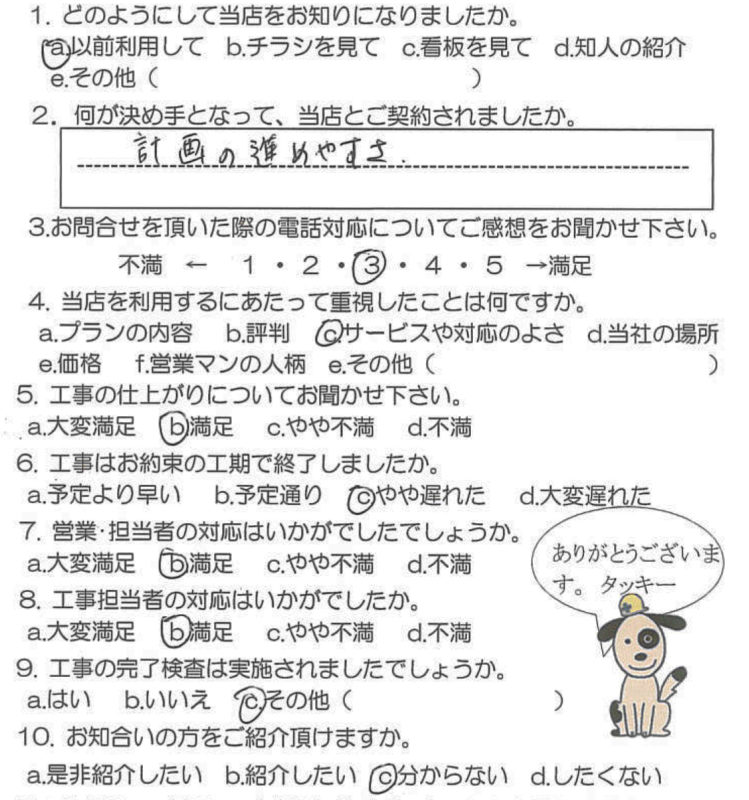 1. どのようにして当店をお知りになりましたか。
a.以前利用して b.チラシを見て c.看板を見て d.知人の紹介
e.その他（ ）
2. 何が決め手となって、当店とご契約されましたか。
計画の進めやすさ.
3.お問合せを頂いた際の電話対応についてご感想をお聞かせ下さい。
不満 ← 1・2・3・4・5 →満足
4. 当店を利用するにあたって重視したことは何ですか。
a.プランの内容 b.評判 c.サービスや対応のよさ d.当社の場所
e.価格 f.営業マンの人柄 e.その他（ ）
5. 工事の仕上がりについてお聞かせ下さい。
a.大変満足 b満足 c.やや不満 d.不満
6. 工事はお約束の工期で終了しましたか。
a.予定より早い b.予定通り cやや遅れた d.大変遅れた
7. 営業・担当者の対応はいかがでしたでしょうか。
a.大変満足 b満足 c.やや不満 d.不満
ありがとうございま
す。 タッキー
8. 工事担当者の対応はいかがでしたか。
a.大変満足 b満足 c.やや不満 d.不満
9. 工事の完了検査は実施されましたでしょうか。
a.はい b.いいえ c.その他（ ）
10. お知合いの方をご紹介頂けますか。
a.是非紹介したい b.紹介したい c分からない d.したくない